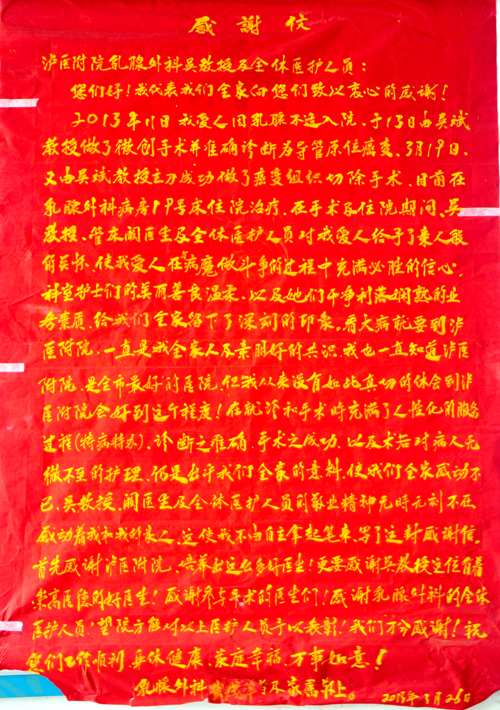 感謝信
泸医附院乳腺外科吴教授及全体医护人员:
您们好!我代表我们全家向您们致以衷心的感谢!
2013年 日我爱人因乳腺不适入院、于13日由吴斌
教授做了微创手术并准确诊断为导管原位癌变、3月19日、
又由吴斌教授主刀成功做了癌变组织切除手术、目前在
乳腺外科病房19号床住院治疗、在手术及住院期间、吴
教授、管床阚医生及全体医护人员对我爱人给予了亲人般
的关怀、使我爱人在病魔做斗争的过程中充满必胜的信心、
科室护士们的美丽善良温柔、以及她们干净利落娴熟的业
务素质、给我们全家留下了深刻的印象。看大病就要到泸
医附院、一直是我全家人及亲朋好的共识、我也一直知道泸医
附院、是全市最好的医院、但我从来没有如此真切的体会到泸
医附院会好到这个程度!在就诊和手术时充满了人性化的服务
过程(特病特办)、诊断之准确、手术之成功、以及术后对病人无
微不至的护理、仍是出乎我们全家的意料、使我们全家感动不
已、吴教授、阚医生及全体医护人员的敬业精神无时无刻不在
感动着我和我的家人、这使我不由自主拿起笔来、写了这封感谢信、
首先感谢泸医附院、培养出这么多好医生!更要感谢吴教授这位有着
崇高医德的好医生!感谢参与手术的医生们!感谢乳腺外科的全体
医护人员!望院方能对以上医护人员予以表彰!我们万分感谢!祝
您们工作顺利、身体健康、家庭幸福、万事如意!
乳腺外科 及家属 上。
2013年3月25日